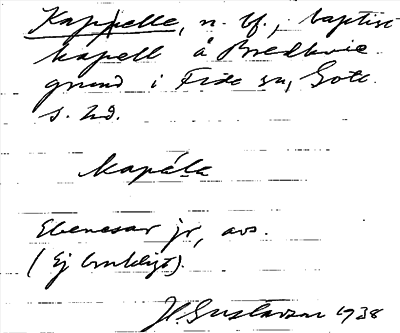 Kappelle, n. bf., baptist
kapell å Bredkvie
grund i Fide sn, Gotl.
s. hd.
kapä́lla
Ebenesar jr, avs.
(Ej brukligt).
H. Gustavson 1938